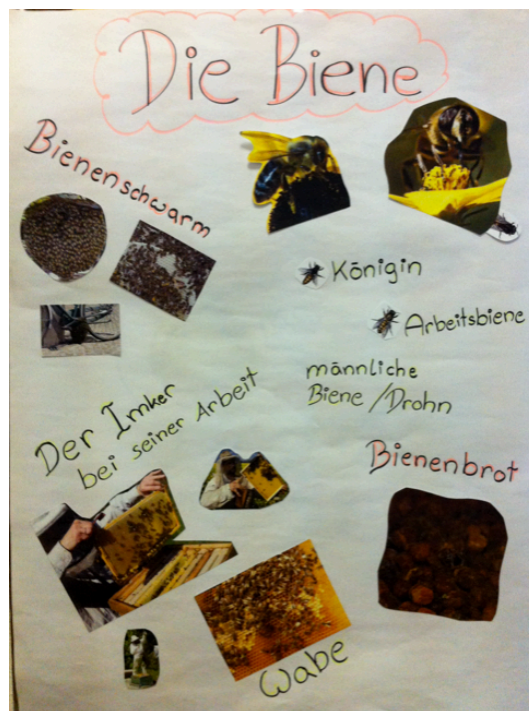 Die Biene
Bienenschwarm
Königin
Arbeitsbiene
männliche
Biene / Drohn
Der Imker
bei seiner Arbeit
Bienenbrot
Wabe